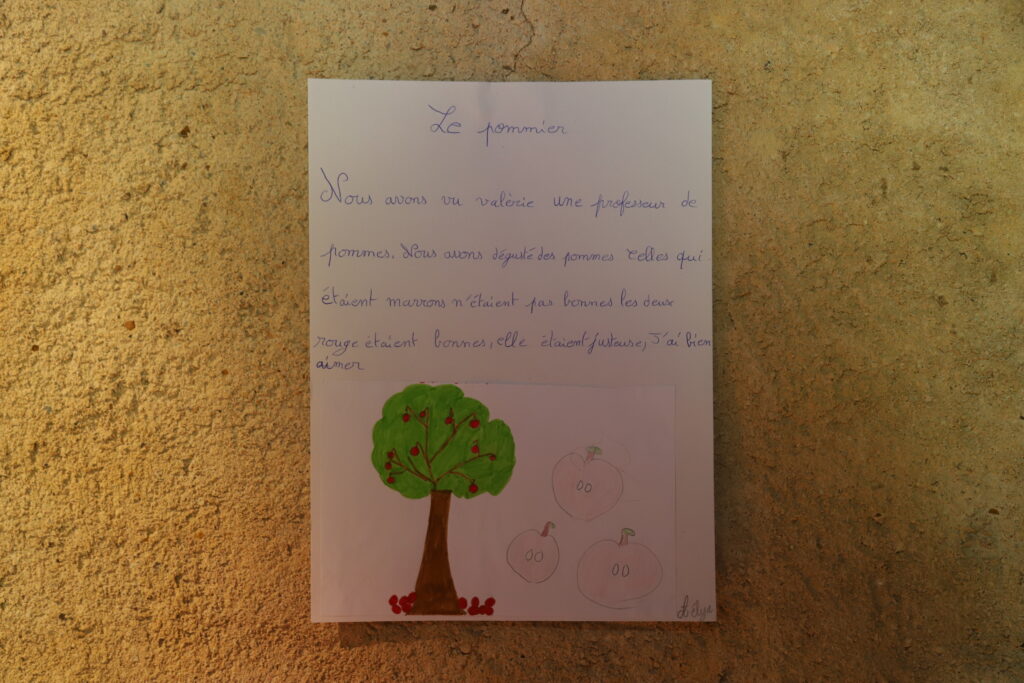 Le pommier
Nous avons vu valérie une professeur de
pommes. Nous avons dégusté des pommes celles qui
étaient marrons n'étaient pas bonnes les deux
rouge étaient bonnes, elle étaient justeuse, J'ai bien
aimer